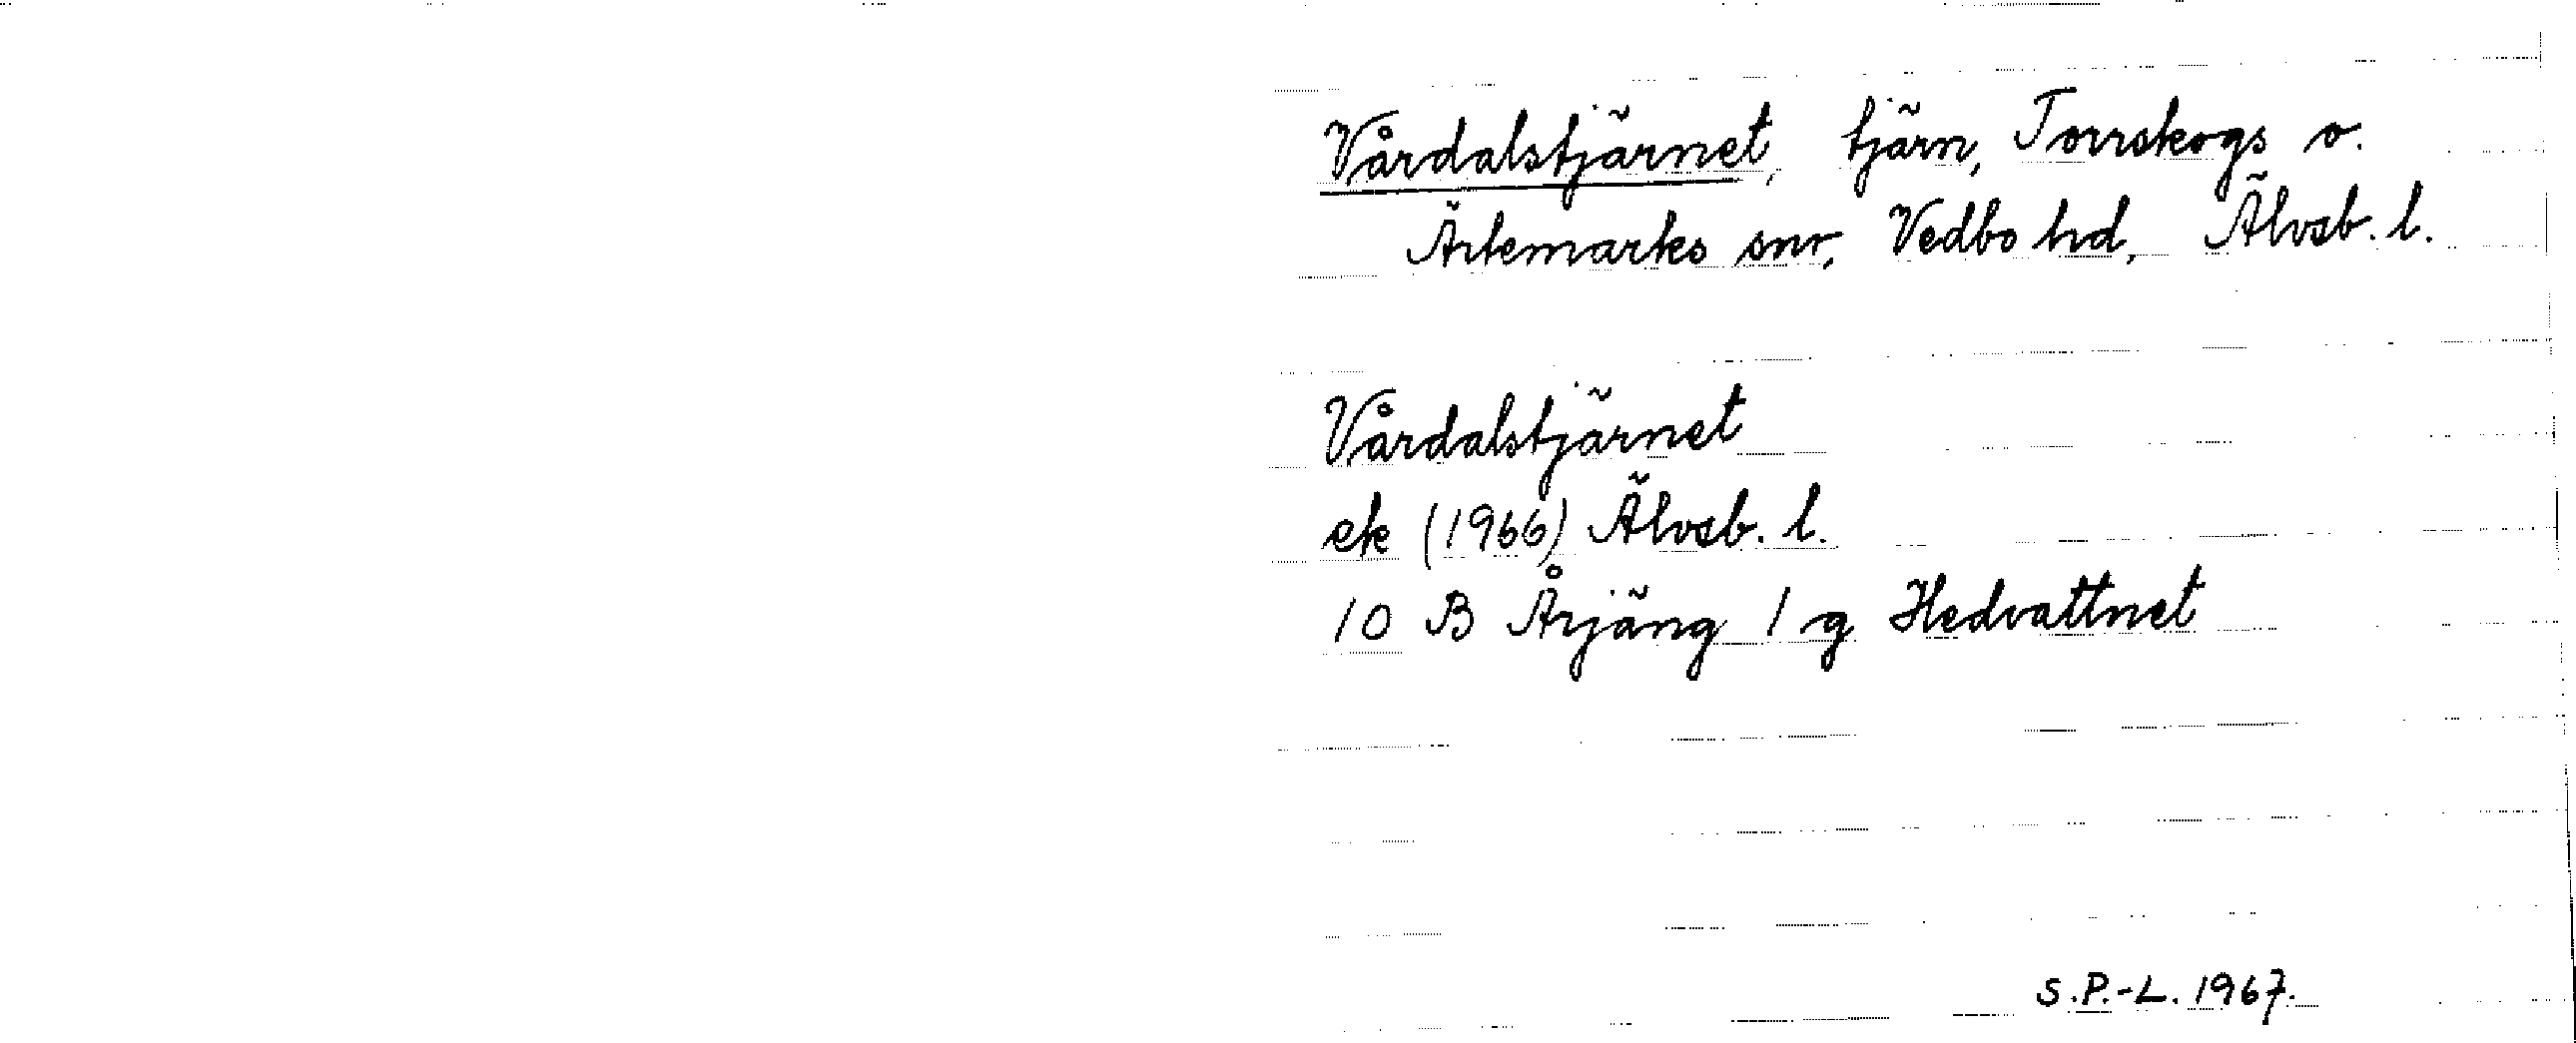 Vårdalstjärnet, tjärn, Torrskogs o.
Ärtemarks snr, Vedbo hd, Älvsb. l.
Vårdalstjärnet
ek (1966) Älvsb. l.
10 B Årjäng 1 g Hedvattnet
S.P.-L. 1967.